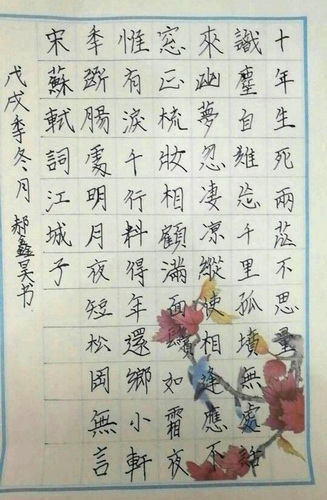 十年生死兩茫不思量
識塵自難忘千里孤墳無處話
來幽夢忽凄凉縱使相逢應不
窓正梳妝相顧滿面鬢如霜夜
惟有淚千行料得年還鄉小軒
秊斷腸處明月夜短松岡無言
宋蘇軾詞江城子
戊戌季冬月 郝鑫昊书